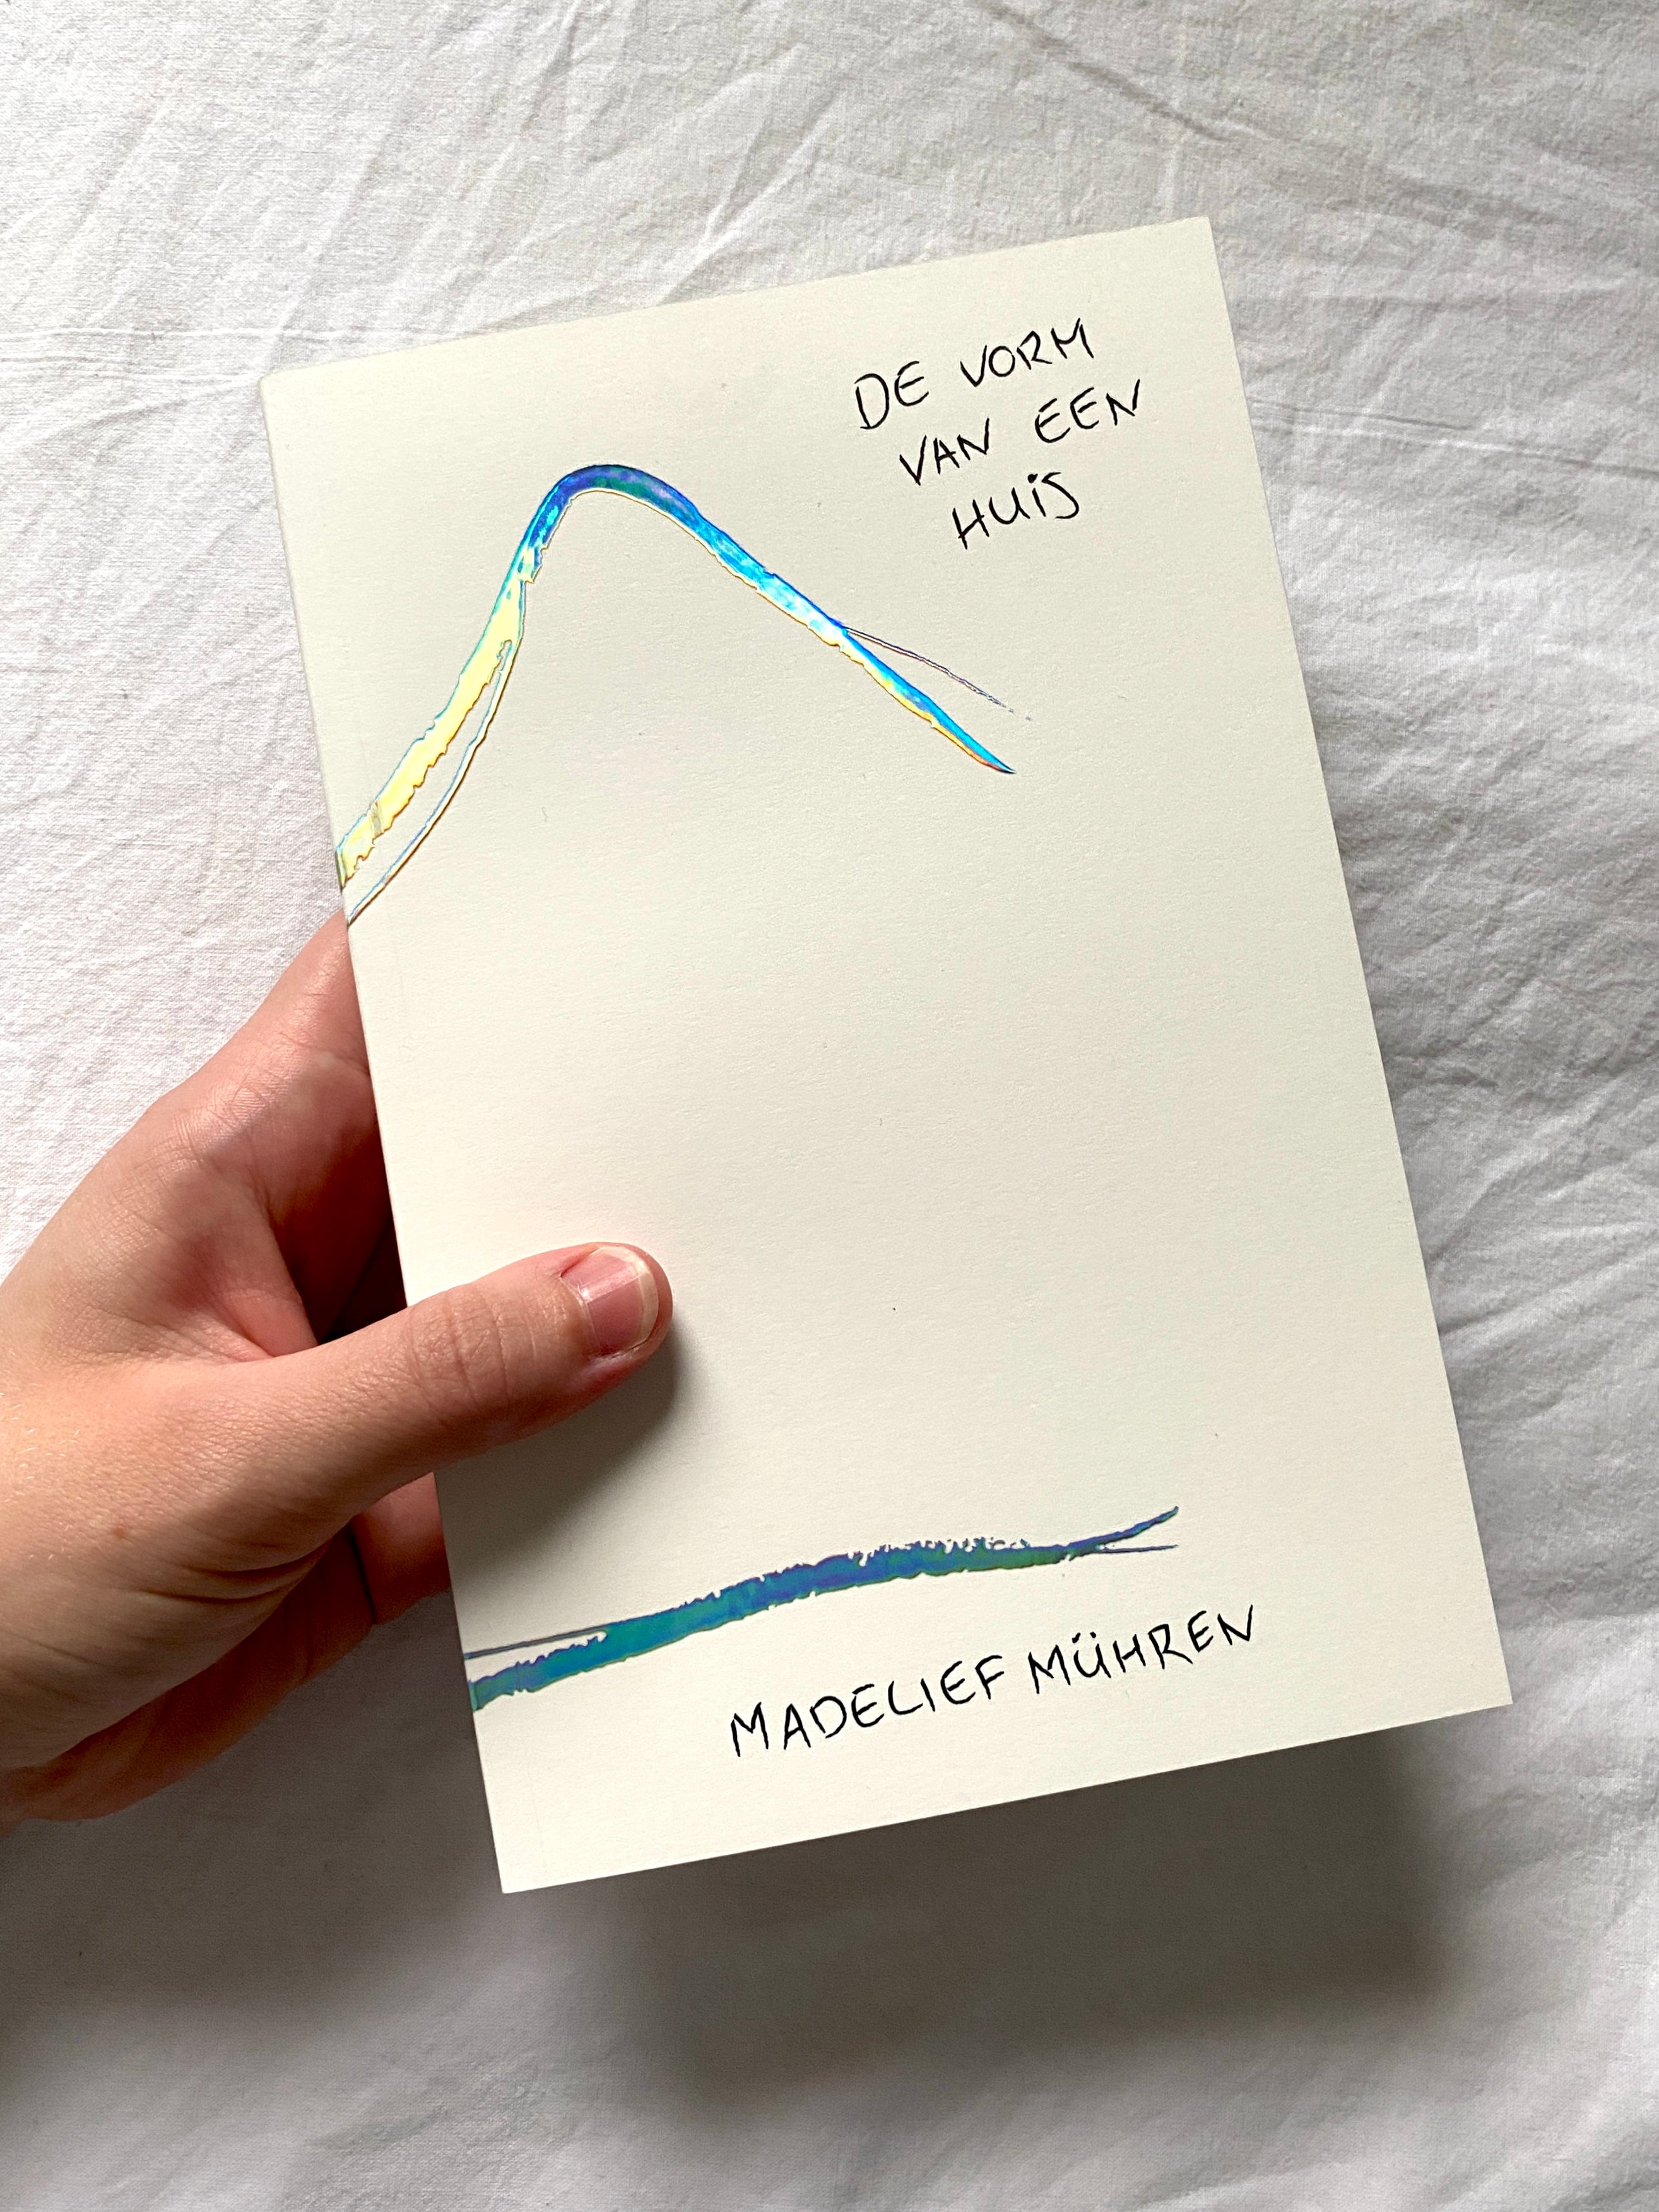 DE VORM
VAN EEN
HUIS
MADELIEF MÜHREN